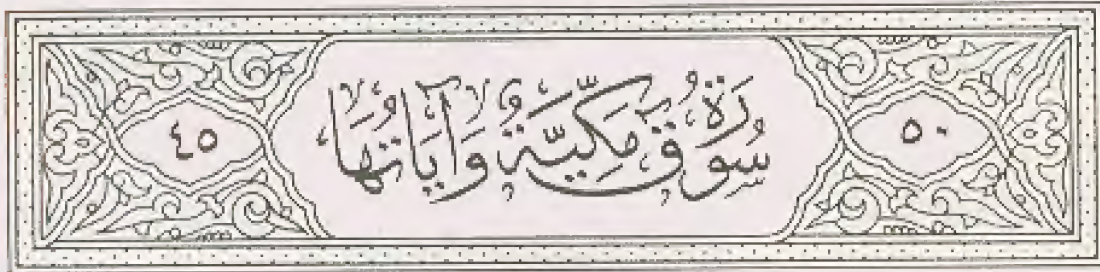 ٥٠ سُورَةُ ق مَكِّيَّة وَآيَاتُهَا ٤٥